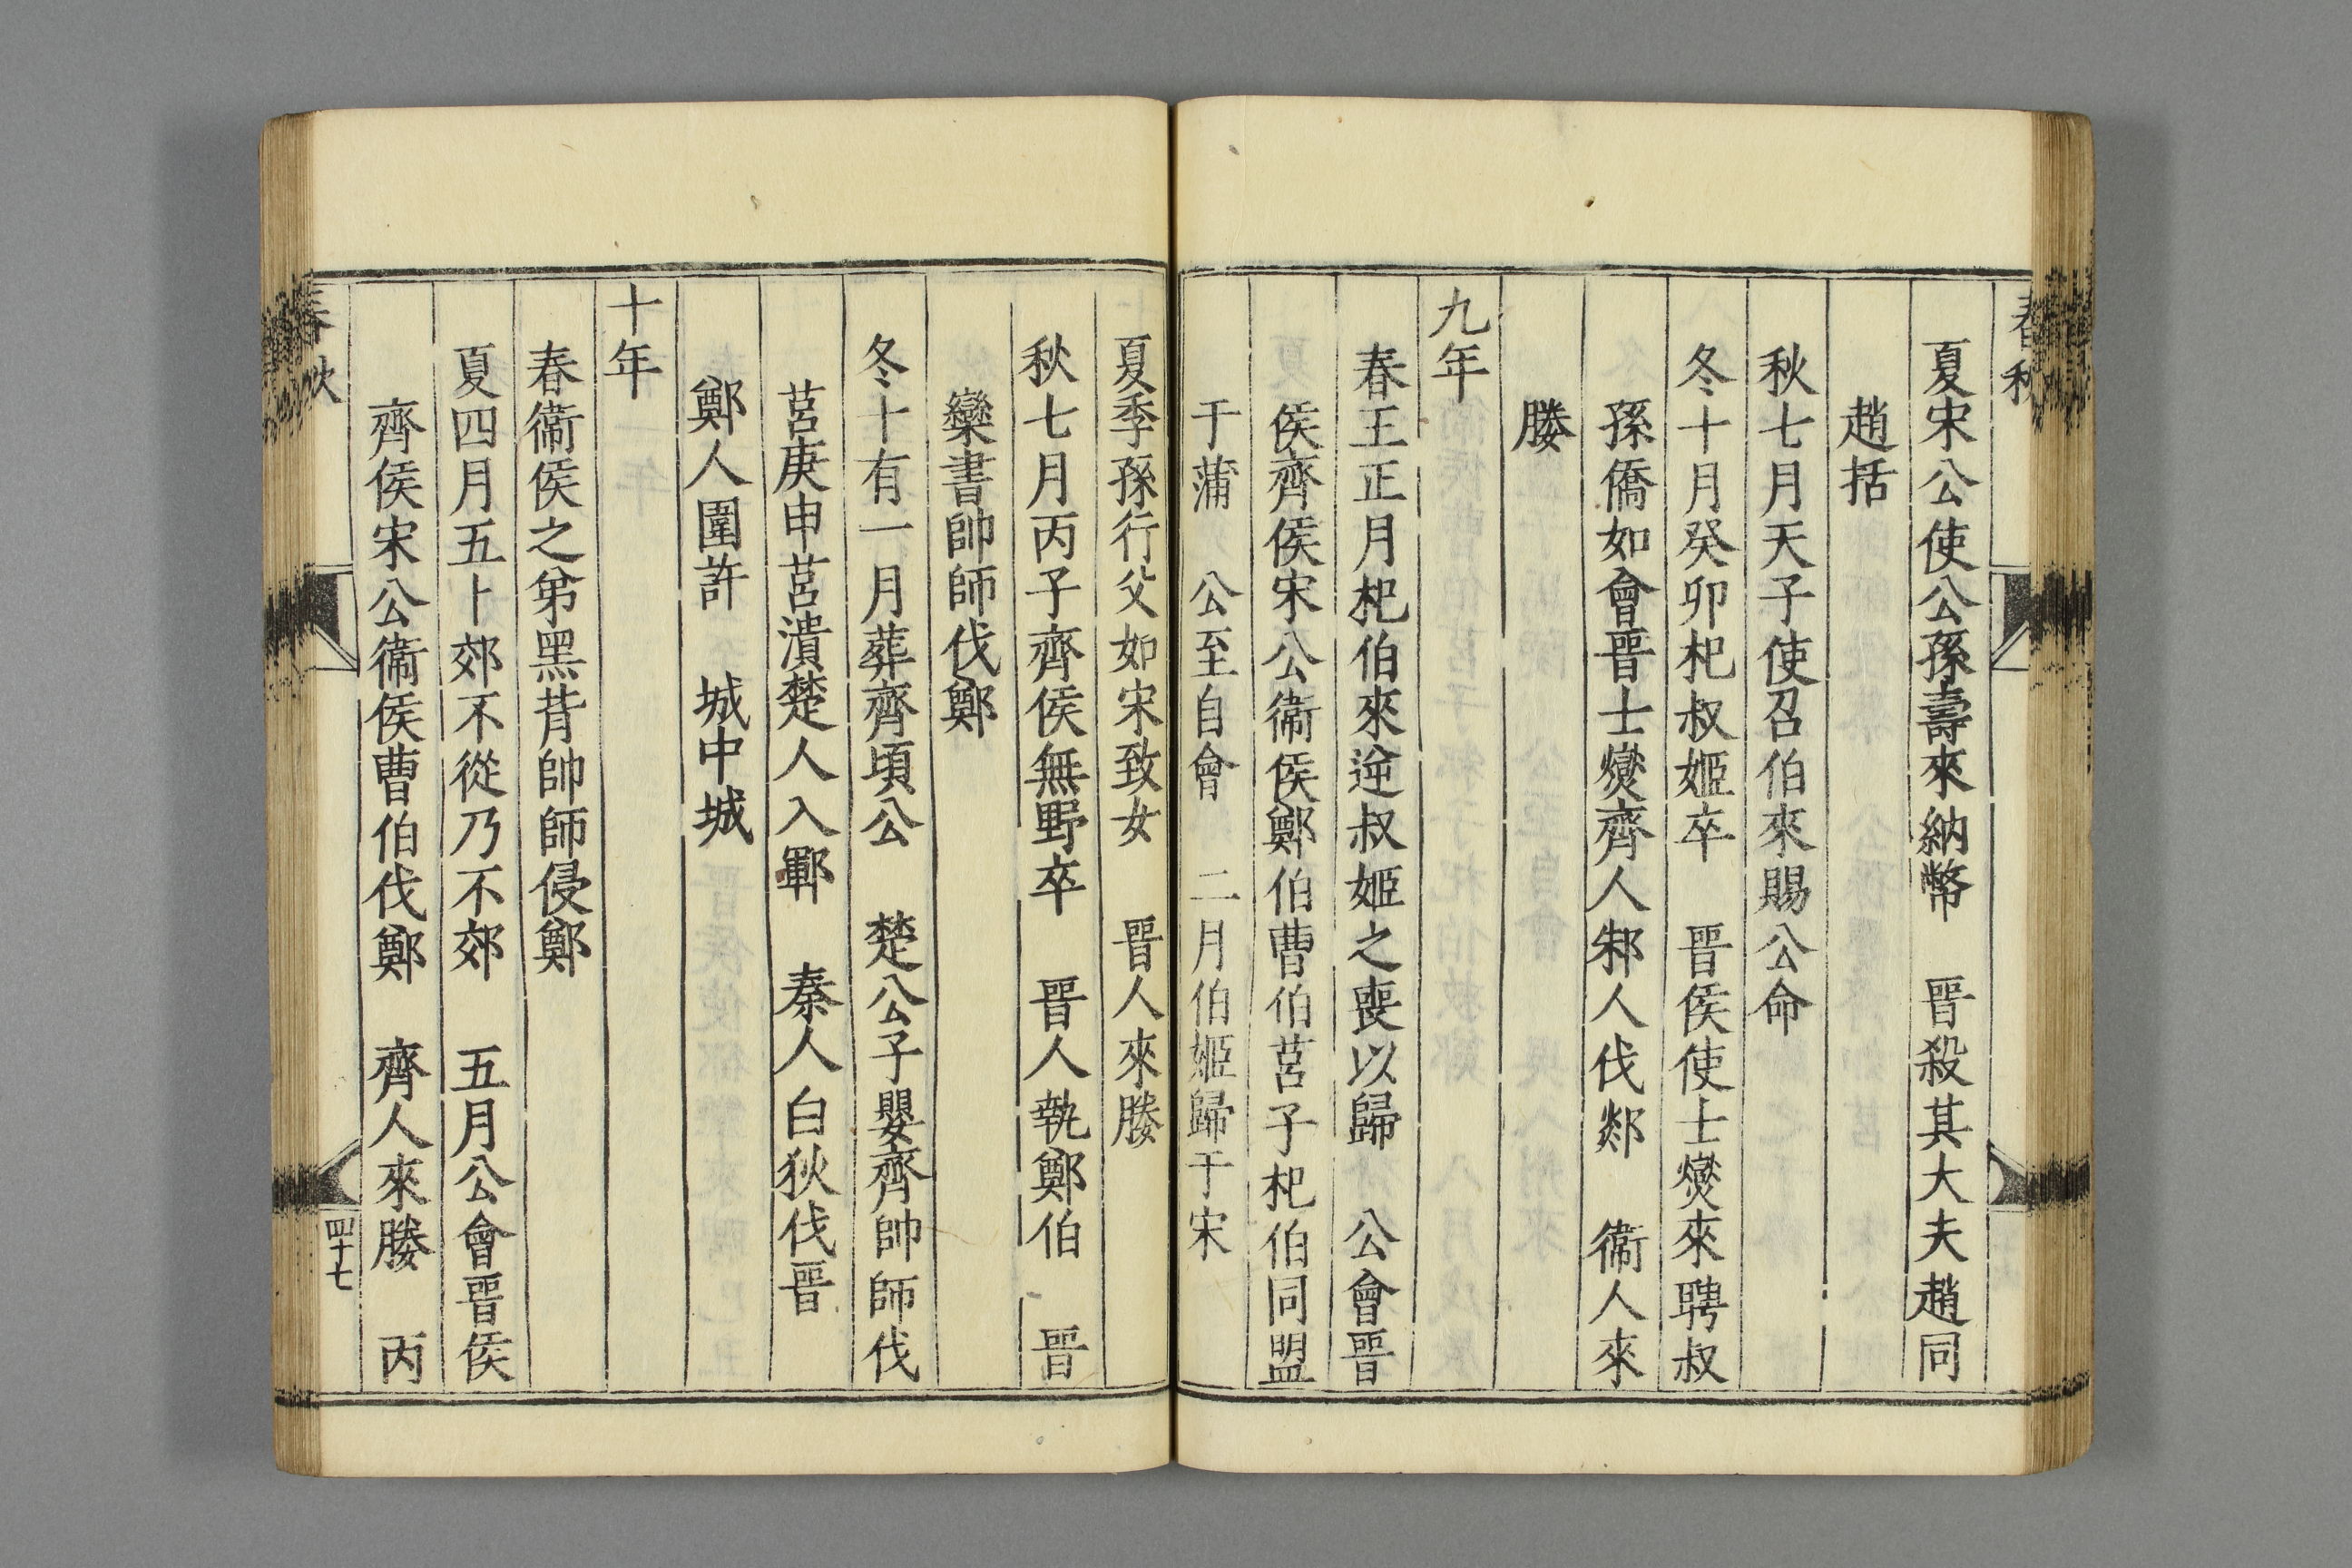 春秋
夏宋公使公孫壽來納幣　晉殺其大夫趙同
趙括
秋七月天子使召伯來賜公命
冬十月癸卯杞叔姬卒　晉侯使士燮來聘叔
孫僑如會晉士燮齊人邾人伐郯　衞人來
媵
九年
春王正月杞伯來逆叔姬之喪以歸　公會晉
侯齊侯宋公衞侯鄭伯曹伯莒子杞伯同盟
于蒲　公至自會　二月伯姬歸于宋
夏季孫行父如宋致女　晉人來媵
秋七月丙子齊侯無野卒　晉人執鄭伯　晉
欒書帥師伐鄭
冬十有一月葬齊頃公　楚公子嬰齊帥師伐
莒庚申莒潰楚人入鄆　秦人白狄伐晉
鄭人圍許　城中城
十年
春衞侯之弟黑背帥師侵鄭
夏四月五卜郊不從乃不郊　五月公會晉侯
齊侯宋公衞侯曹伯伐鄭　齊人來媵　丙
春秋
四十七